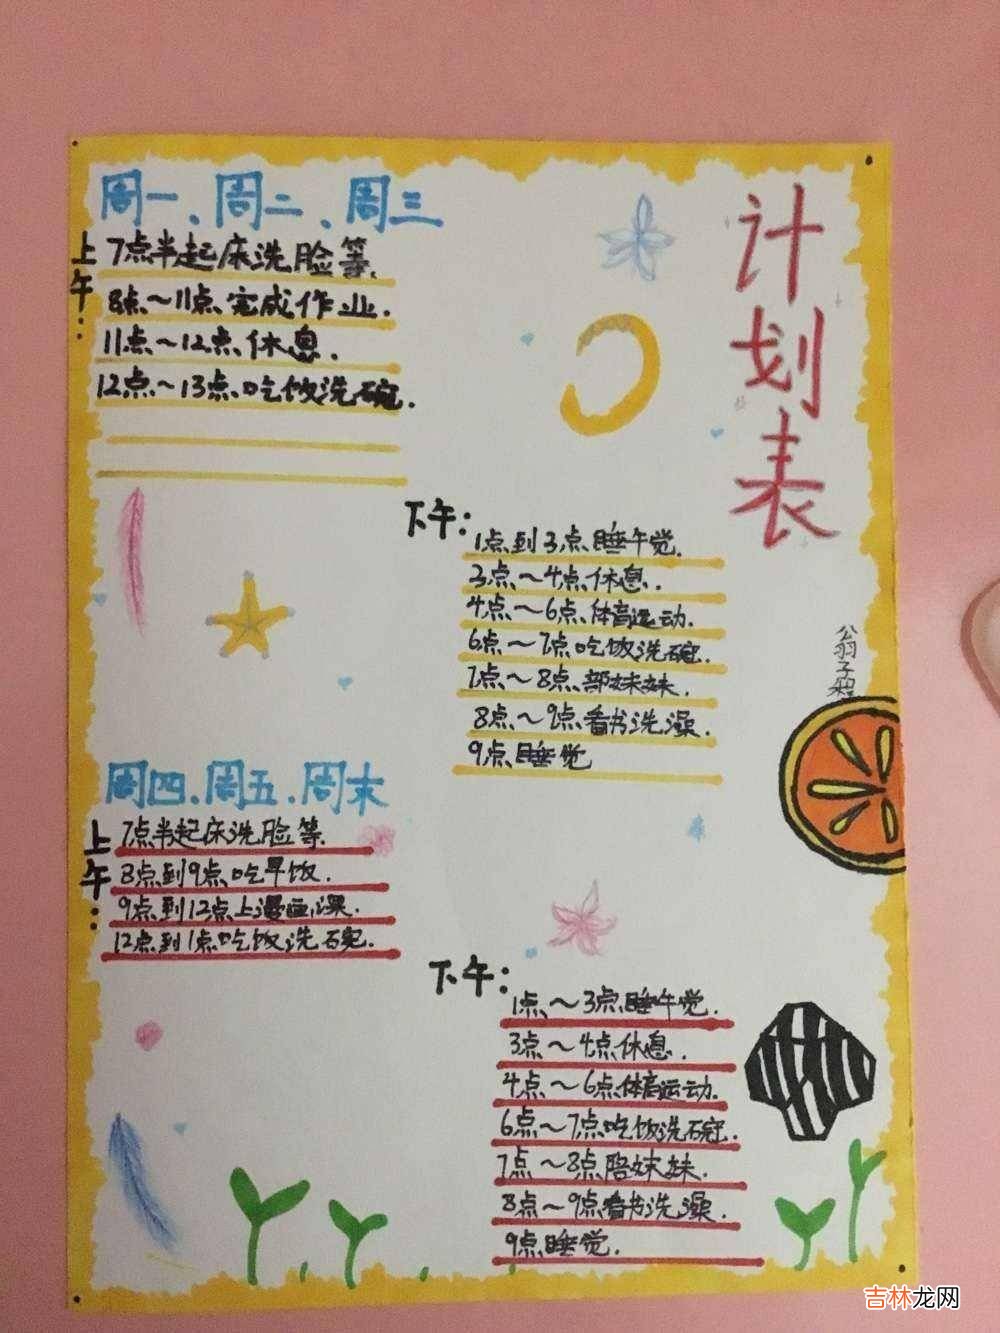 计划表
周一、周二、周三
上午：
7点半起床洗脸等.
8点~11点完成作业.
11点~12点休息.
12点~13点吃饭洗碗.
下午：
1点到3点睡午觉.
3点~4点休息.
4点~6点体育运动.
6点~7点吃饭洗碗.
7点~8点部妹妹.
8点~9点看书洗澡.
9点睡觉
翁子程
周四.周五.周末
上午：
7点半起床洗脸等.
8点到9点吃早饭.
9点到12点上漫画课.
12点到1点吃饭洗碗.
下午：
1点~3点睡午觉.
3点~4点休息.
4点~6点体育运动.
6点~7点吃饭洗碗.
7点~8点陪妹妹.
8点~9点看书洗澡.
9点睡觉.
吉林龙网